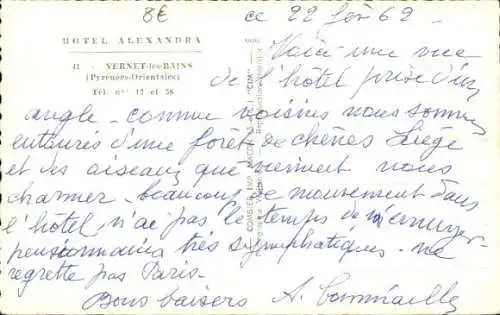 8€
ce 22 Fév 62
HOTEL ALEXANDRA
41 - VERNET-les-BAINS
(Pyrénées-Orientales)
Tél. nos 12 et 58
Voilà une vue
de l'hôtel prise d'un
angle - comme voisins nous sommes
entourés d'une forêt de chênes liège
et des oiseaux qui viennent nous
charmer - beaucoup de mouvement dans
l'hôtel n'ai pas le temps de m'ennuyer -
pensionnaires très sympathiques - ne
regrette pas Paris -
Bons baisers A.
COMBIER IMP. MACON "CIM"